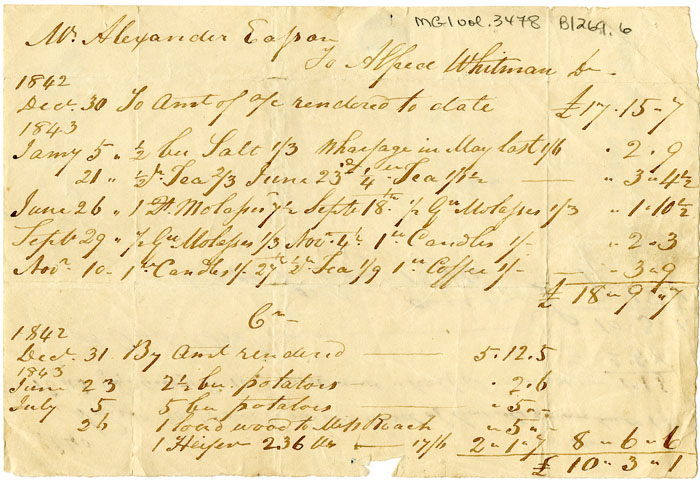 MG1 vol. 3478 B1269.6
Mr. Alexander Eason
To Alfred Whitman Dr
1842
Decr. 30 To Amt of a/c rendered to date £17.15-7
1843
Jany 5 " ½ bu Salt 1/3 Wharfage in May last 1/6 " 2 " 9
21 " ½ lb. Tea 2/3 June 23d ¼ lb Tea 1/1½ — " 3 " 4½
June 26 " 1 Qt. Molasses 7½ Septr 18th ½ Gn Molasses 1/3 " 1 " 10½
Septr 29 " ½ Gn Molasses 1/3 Novr. 4th 1 lb Candles 1/- " 2 " 3
Novr 10 - 1 lb Candles 1/- 27th ½ lb Tea 1/9 1 lb Coffee 1/- — " 3 " 9
£ 18 " 9 " 7
Cr
1842
Decr. 31 By Amt rendered — 5.12.5
1843
June 23 2½ bu potatoes — " 2.6
July 5 5 bu potatoes — " 5 " -
26 1 load wood to Miss Roach " 5 " -
1 Heifer 236 lbs — 17/6 2 " 1 " 7 8 " 6 " 6
£ 10 " 3 " 1